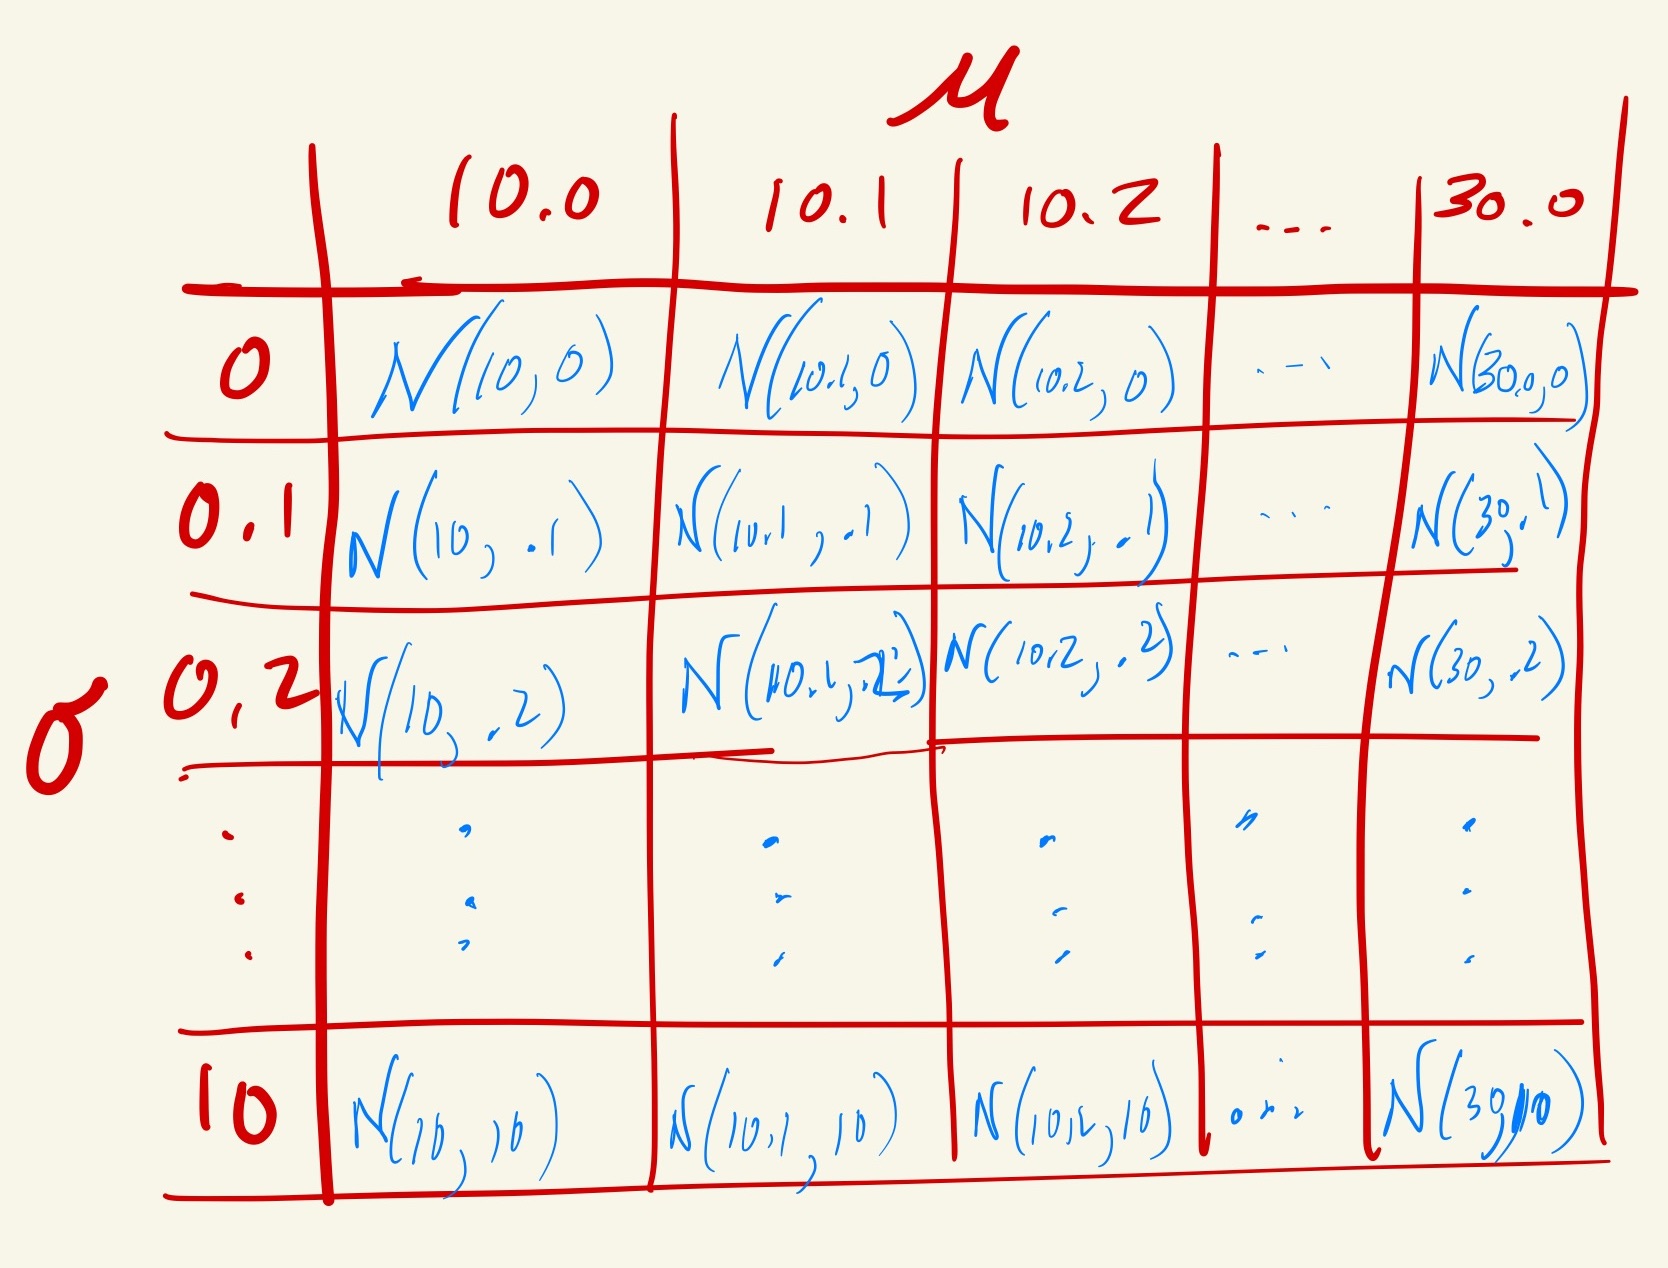 μ
10.0 10.1 10.2 .... 30.0
0 N(10, 0) N(10.1, 0) N(10.2, 0) ... N(30.0, 0)
0.1 N(10, .1) N(10.1, .1) N(10.2, .1) ... N(30, .1)
σ 0.2 N(10, .2) N(10.1, .2) N(10.2, .2) ... N(30, .2)
10 N(10, 10) N(10.1, 10) N(10.2, 10) ... N(30, 10)